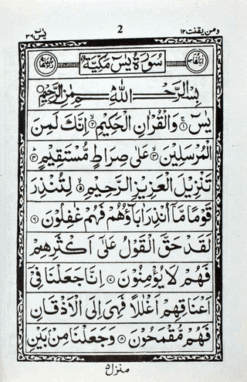 ومن يقنت ٢٢ 2 يٰسٓ ٣٦
سُوْرَةُ يٰسٓ مَكِّيَّةٌ
بِسْمِ اللّٰهِ الرَّحْمٰنِ الرَّحِيْمِ
يٰسٓ ۚ وَالْقُرْاٰنِ الْحَكِيْمِ ۙ اِنَّكَ لَمِنَ
الْمُرْسَلِيْنَ ۙ عَلٰى صِرَاطٍ مُّسْتَقِيْمٍ ؕ
تَنْزِيْلَ الْعَزِيْزِ الرَّحِيْمِ ۙ لِتُنْذِرَ
قَوْمًا مَّاۤ اُنْذِرَ اٰبَآؤُهُمْ فَهُمْ غٰفِلُوْنَ ۶
لَقَدْ حَقَّ الْقَوْلُ عَلٰۤى اَكْثَرِهِمْ
فَهُمْ لَا يُؤْمِنُوْنَ ۷ اِنَّا جَعَلْنَا فِيْۤ
اَعْنَاقِهِمْ اَغْلٰلًا فَهِيَ اِلَى الْاَذْقَانِ
فَهُمْ مُّقْمَحُوْنَ ۸ وَجَعَلْنَا مِنْۢ بَيْنِ
منزل ۵